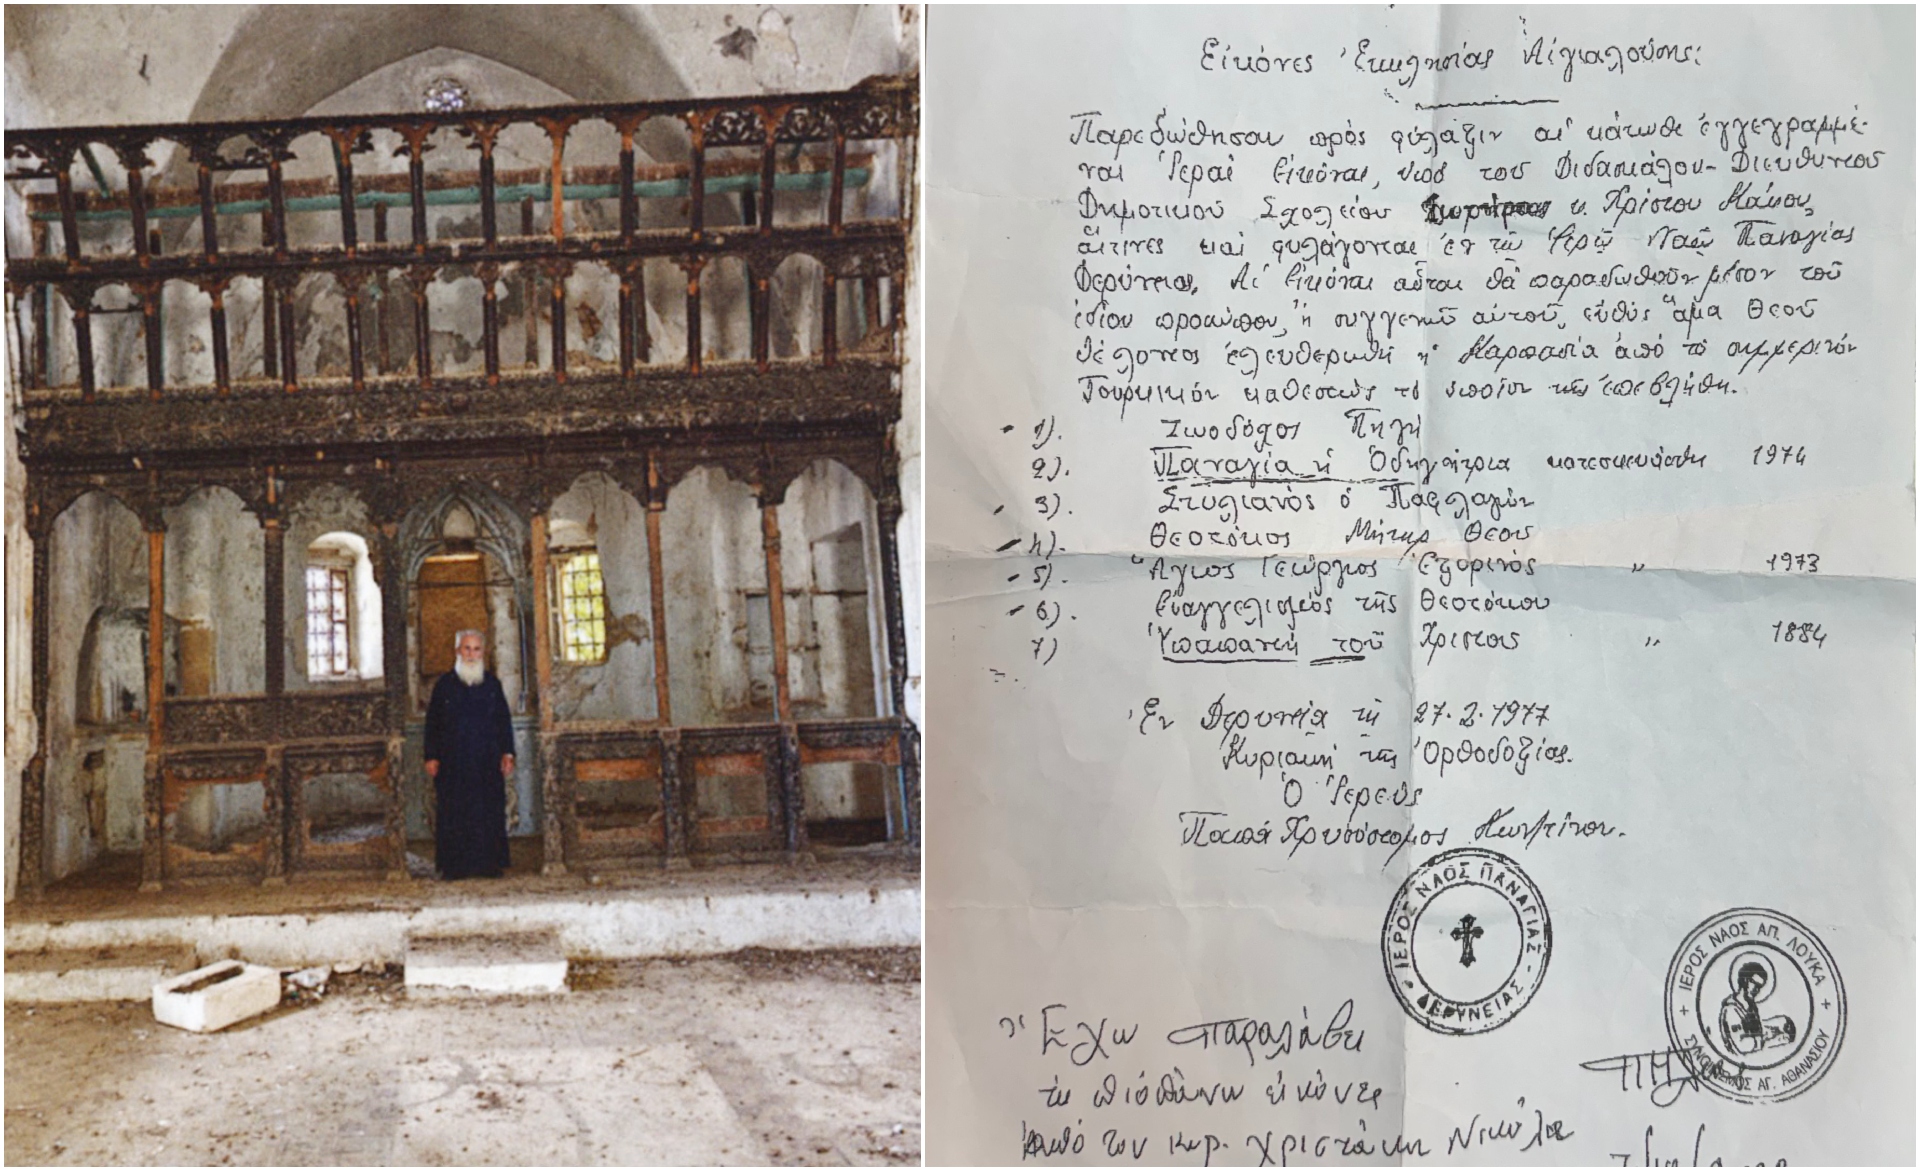 Εἰκόνες Ἐκκλησίας Αἰγιαλούσης:
Παρεδώθησαν πρός φύλαξιν αἱ κάτωθι ἐγγεγραμμέ-
ναι Ἱεραί Εἰκόναι, ὑπό τοῦ Διδασκάλου-Διευθυντοῦ
Δημοτικοῦ Σχολείου κ. Χρίστου Κάκου,
αἵτινες καί φυλάγονται ἐν τῷ Ἱερῷ Ναῷ Παναγίας
Δερύνειας. Αἱ Εἰκόναι αὗται θά παραδωθοῦν μέσον τοῦ
ἰδίου προσώπου, ἤ συγγενοῦ αὐτοῦ, εὐθύς ἅμα Θεοῦ
θέλοντος ἐλευθερωθῆ ἡ Καρπασία ἀπό τό σημμερινόν
Τουρκικόν καθεστώς τό ὁποῖον τῆς ἐπεβλήθη.
1). Ζωοδόχος Πηγή
2). Παναγία ἡ Ὁδηγήτρια κατεσκευάσθη 1974
3). Στυλιανός ὁ Παφλαγών
4). Θεοτόκος Μήτηρ Θεοῦ
5). Ἅγιος Γεώργιος Ἐξορινός " 1973
6). Εὐαγγελισμός τῆς Θεοτόκου
7) Ὑπαπαντή τοῦ Χριστοῦ " 1884
Ἐν Δερυνείᾳ τῇ 27.2.1977
Κυριακή τῆς Ὀρθοδοξίας.
Ὁ Ἱερεύς
Παπά Χρυσόστομος Κων/τίνου.
ΙΕΡΟΣ ΝΑΟΣ ΠΑΝΑΓΙΑΣ - ΔΕΡΥΝΕΙΑΣ -
+ ΙΕΡΟΣ ΝΑΟΣ ΑΠ. ΛΟΥΚΑ +
ΣΥΝΟΙΚΙΣΜΟΣ ΑΓ. ΑΘΑΝΑΣΙΟΥ
Ἔχω παραλάβει
τις πιό πάνω εἰκόνες
ἀπό τον κυρ. Χριστάκη Νικόλα